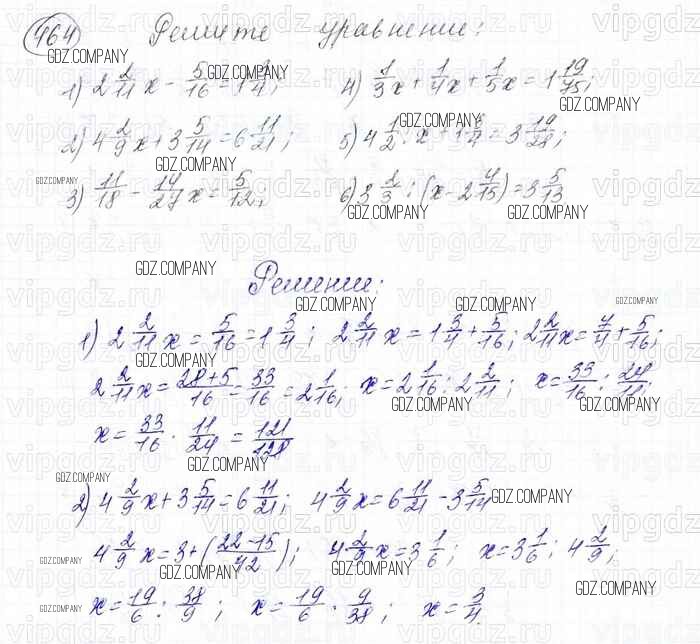 464 Решите уравнение:
1) 2 2/11 x - 5/16 = 1 3/4; 4) 1/3 x + 1/4 x + 1/5 x = 1 19/75;
2) 4 2/9 x + 3 5/14 = 6 11/21; 5) 4 1/2 : x + 1 1/4 = 3 19/28;
3) 11/18 - 14/27 x = 5/12; 6) 3 1/3 : (x - 2 4/15) = 3 5/13
Решение:
1) 2 2/11 x = 5/16 = 1 3/4; 2 2/11 x = 1 3/4 + 5/16; 2 2/11 x = 7/4 + 5/16;
2 2/11 x = 28+5/16 = 33/16 = 2 1/16; x = 2 1/16 : 2 2/11; x = 33/16 : 24/11;
x = 33/16 · 11/24 = 121/128
2) 4 2/9 x + 3 5/14 = 6 11/21; 4 2/9 x = 6 11/21 - 3 5/14
4 2/9 x = 3 + (22-15/42); 4 2/9 x = 3 1/6; x = 3 1/6 : 4 2/9;
x = 19/6 : 38/9; x = 19/6 · 9/38; x = 3/4.
GDZ.COMPANY
vipgdz.ru